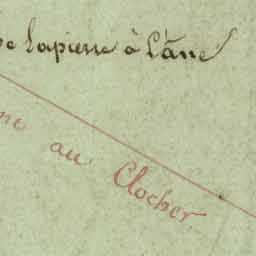 Lapierre à L'âne
au Clocher